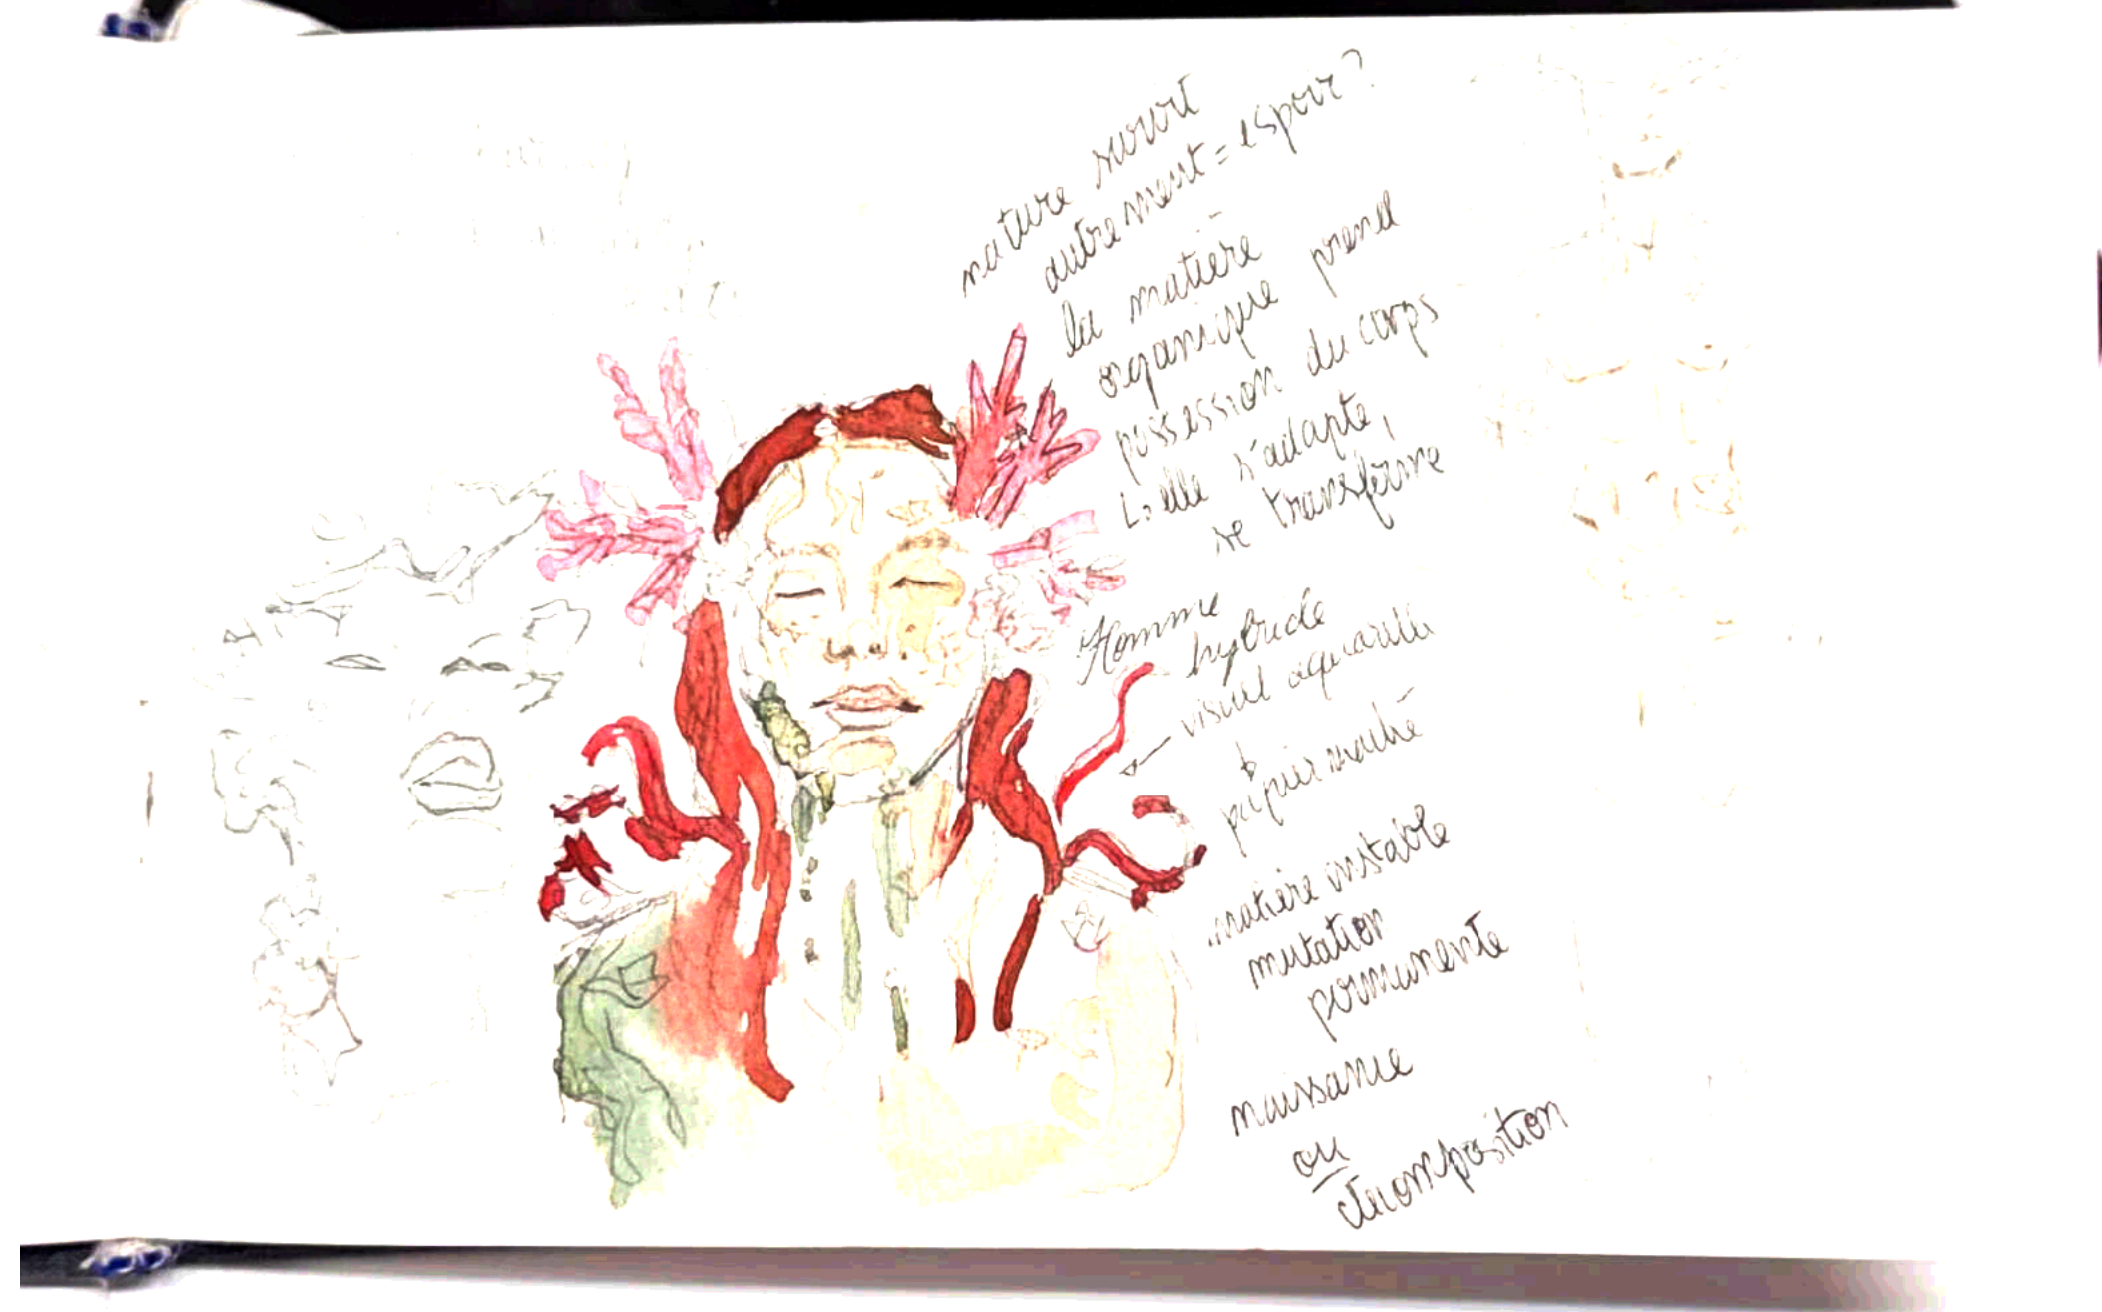 nature survit
autrement = espoir ?
la matière
organique prend
possession du corps
L> elle s'adapte,
se transforme
Homme
hybride
visuel aquarelle
papier maché
matière instable
mutation
permanente
naissance
ou
décomposition